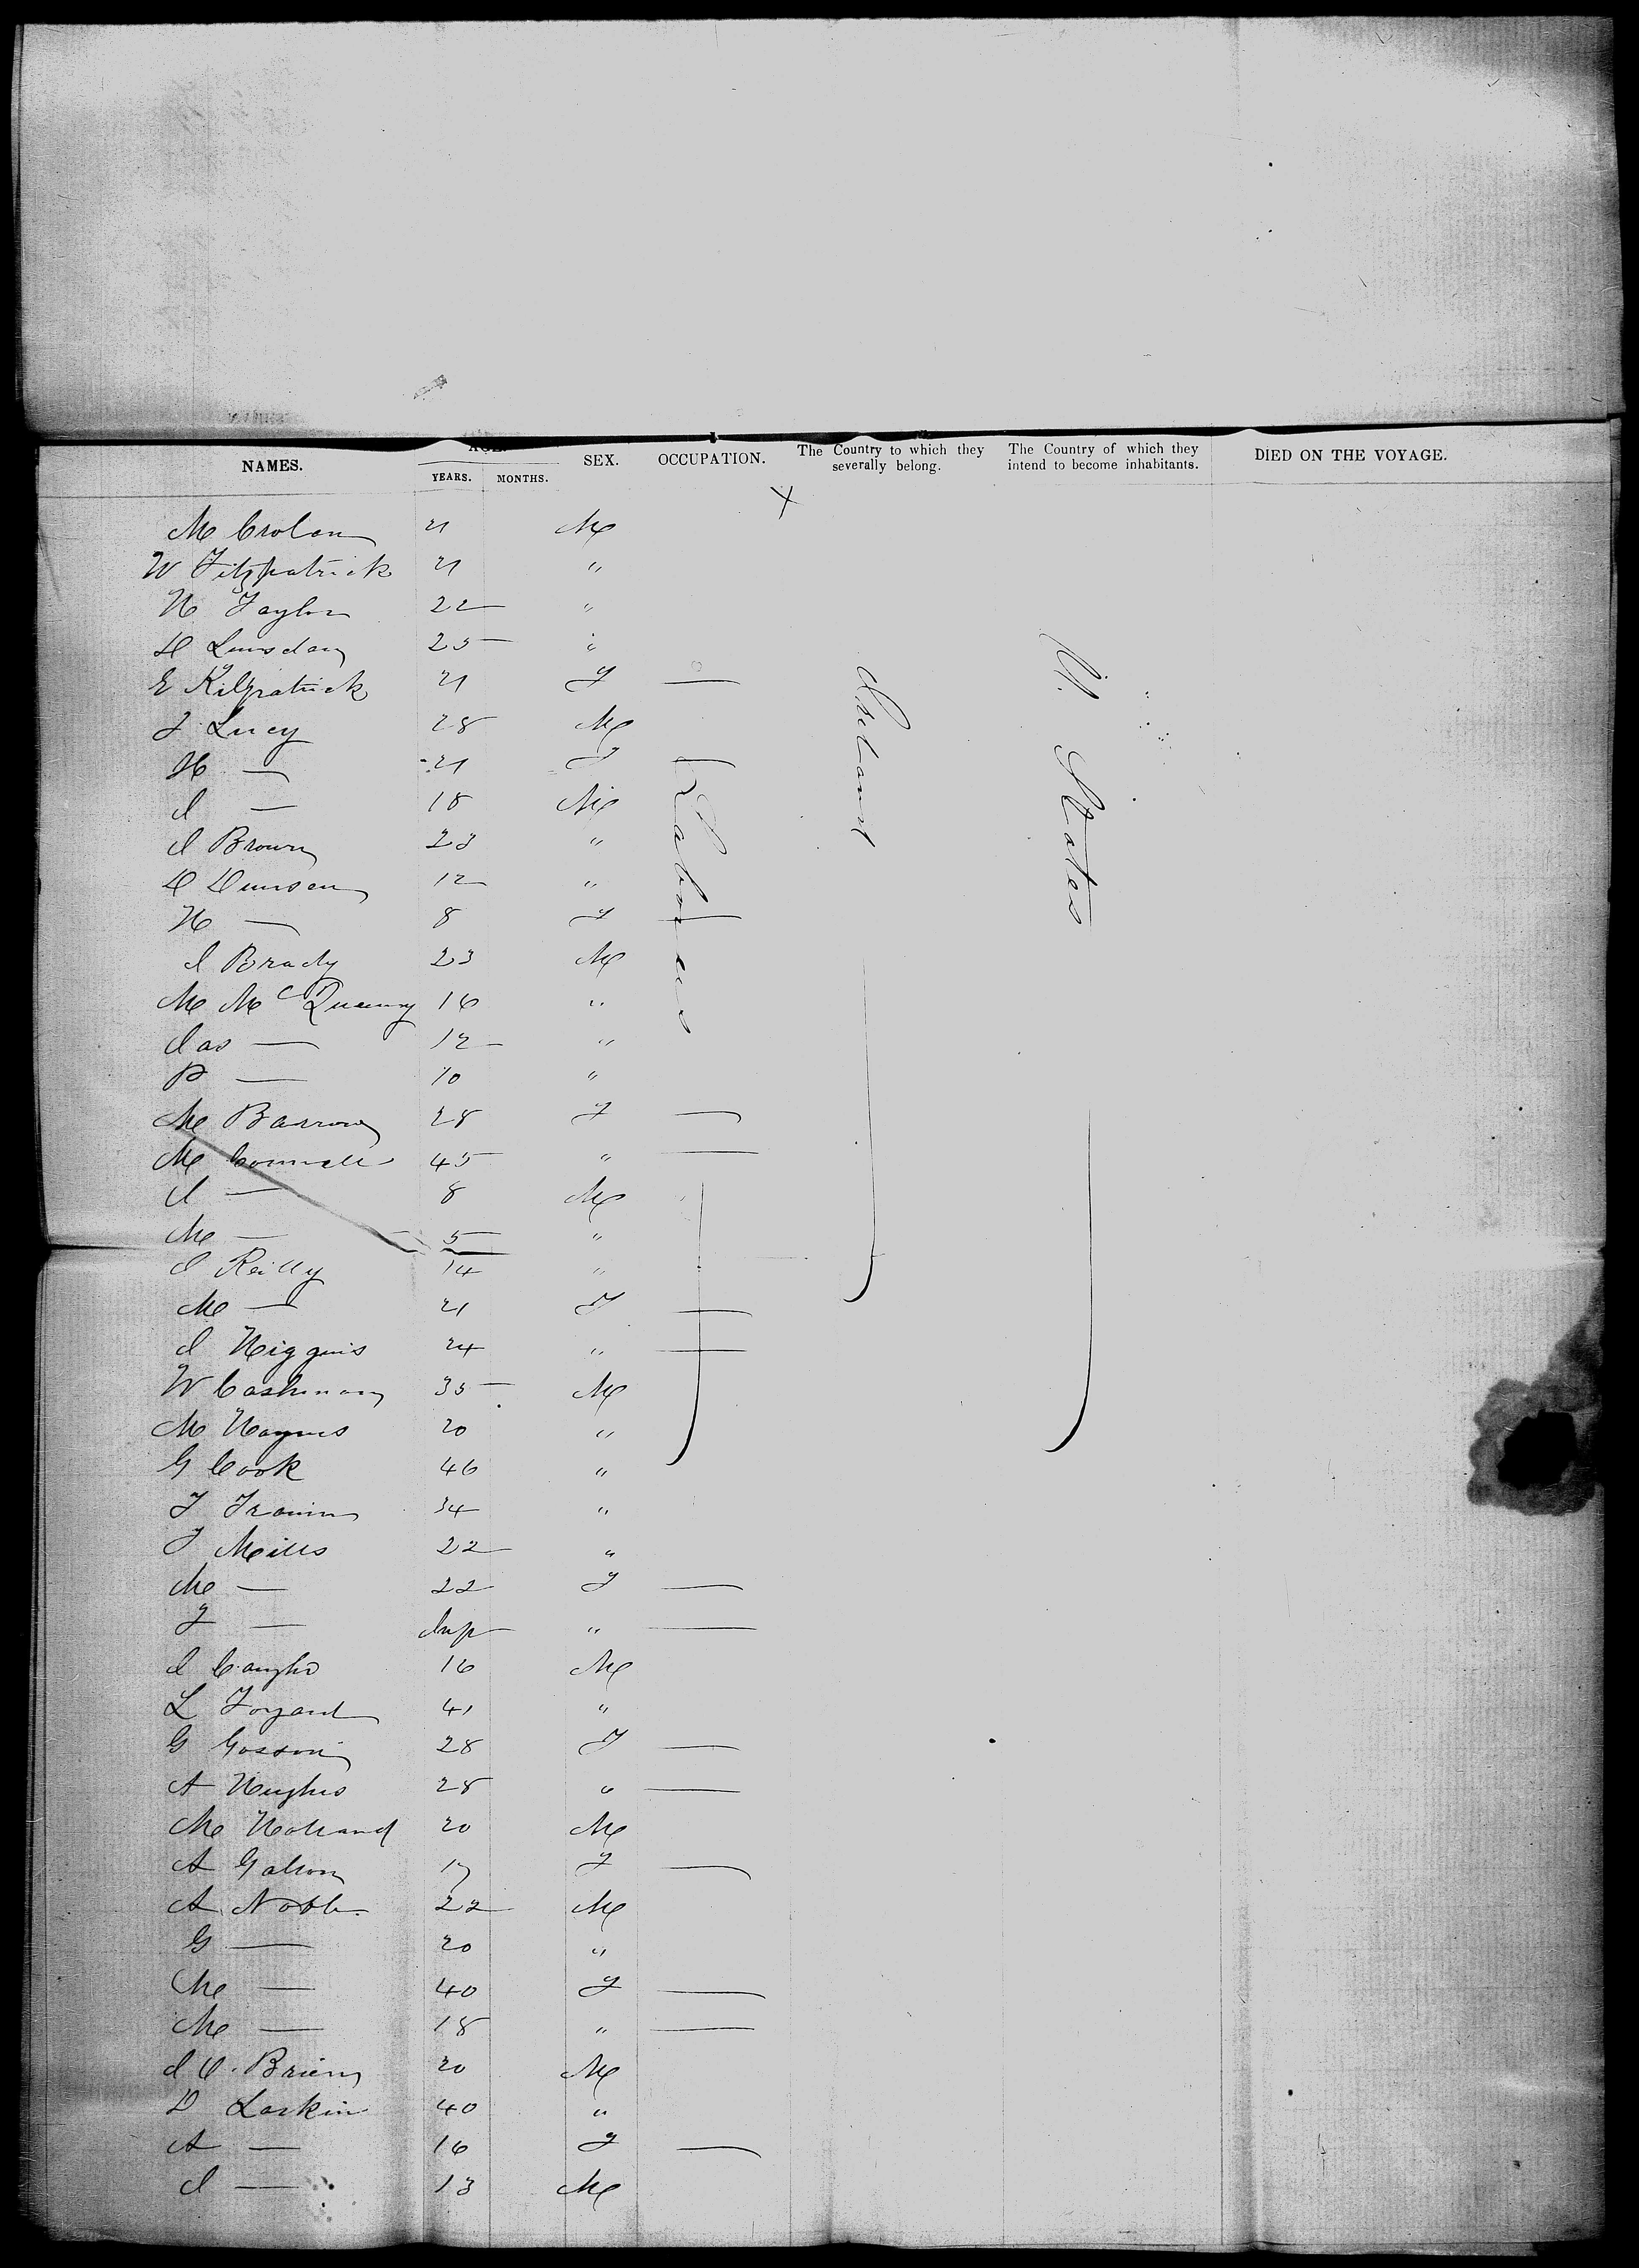 NAMES. AGE. SEX. OCCUPATION. The Country to which they severally belong. The Country of which they intend to become inhabitants. DIED ON THE VOYAGE.
YEARS. MONTHS.
M Crolan 21 M
W Fitzpatrick 21 "
H Taylor 22 "
D Lumsdan 25 "
E Kilpatrick 21 F —
J Lucy 28 M
H — 21 F
J — 18 M
J Brown 23 "
D Dunsen 12 "
H — 8 F —
J Brady 23 M
M McQueeny 16 "
Jas — 12 "
P — 10 "
M Barrow 28 F —
M Connell 45 " —
J — 8 M
M — 5 "
J Reilly 14 "
M — 21 F —
J Higgins 24 " —
W Cashman 35 M
M Haynes 20 "
G Cook 46 "
T 34 "
J Mills 22 "
M — 22 F —
J — Inf " —
J 16 M
L 41 "
G 28 F —
A Hughes 28 " —
M Holland 20 M
A Galson 17 F —
A Noble 22 M
G — 20 "
M — 40 F —
M — 18 " —
J O'Brien 20 M
D Larkin 40 "
A — 16 F —
J — 13 M
Labourers
Ireland
U. States